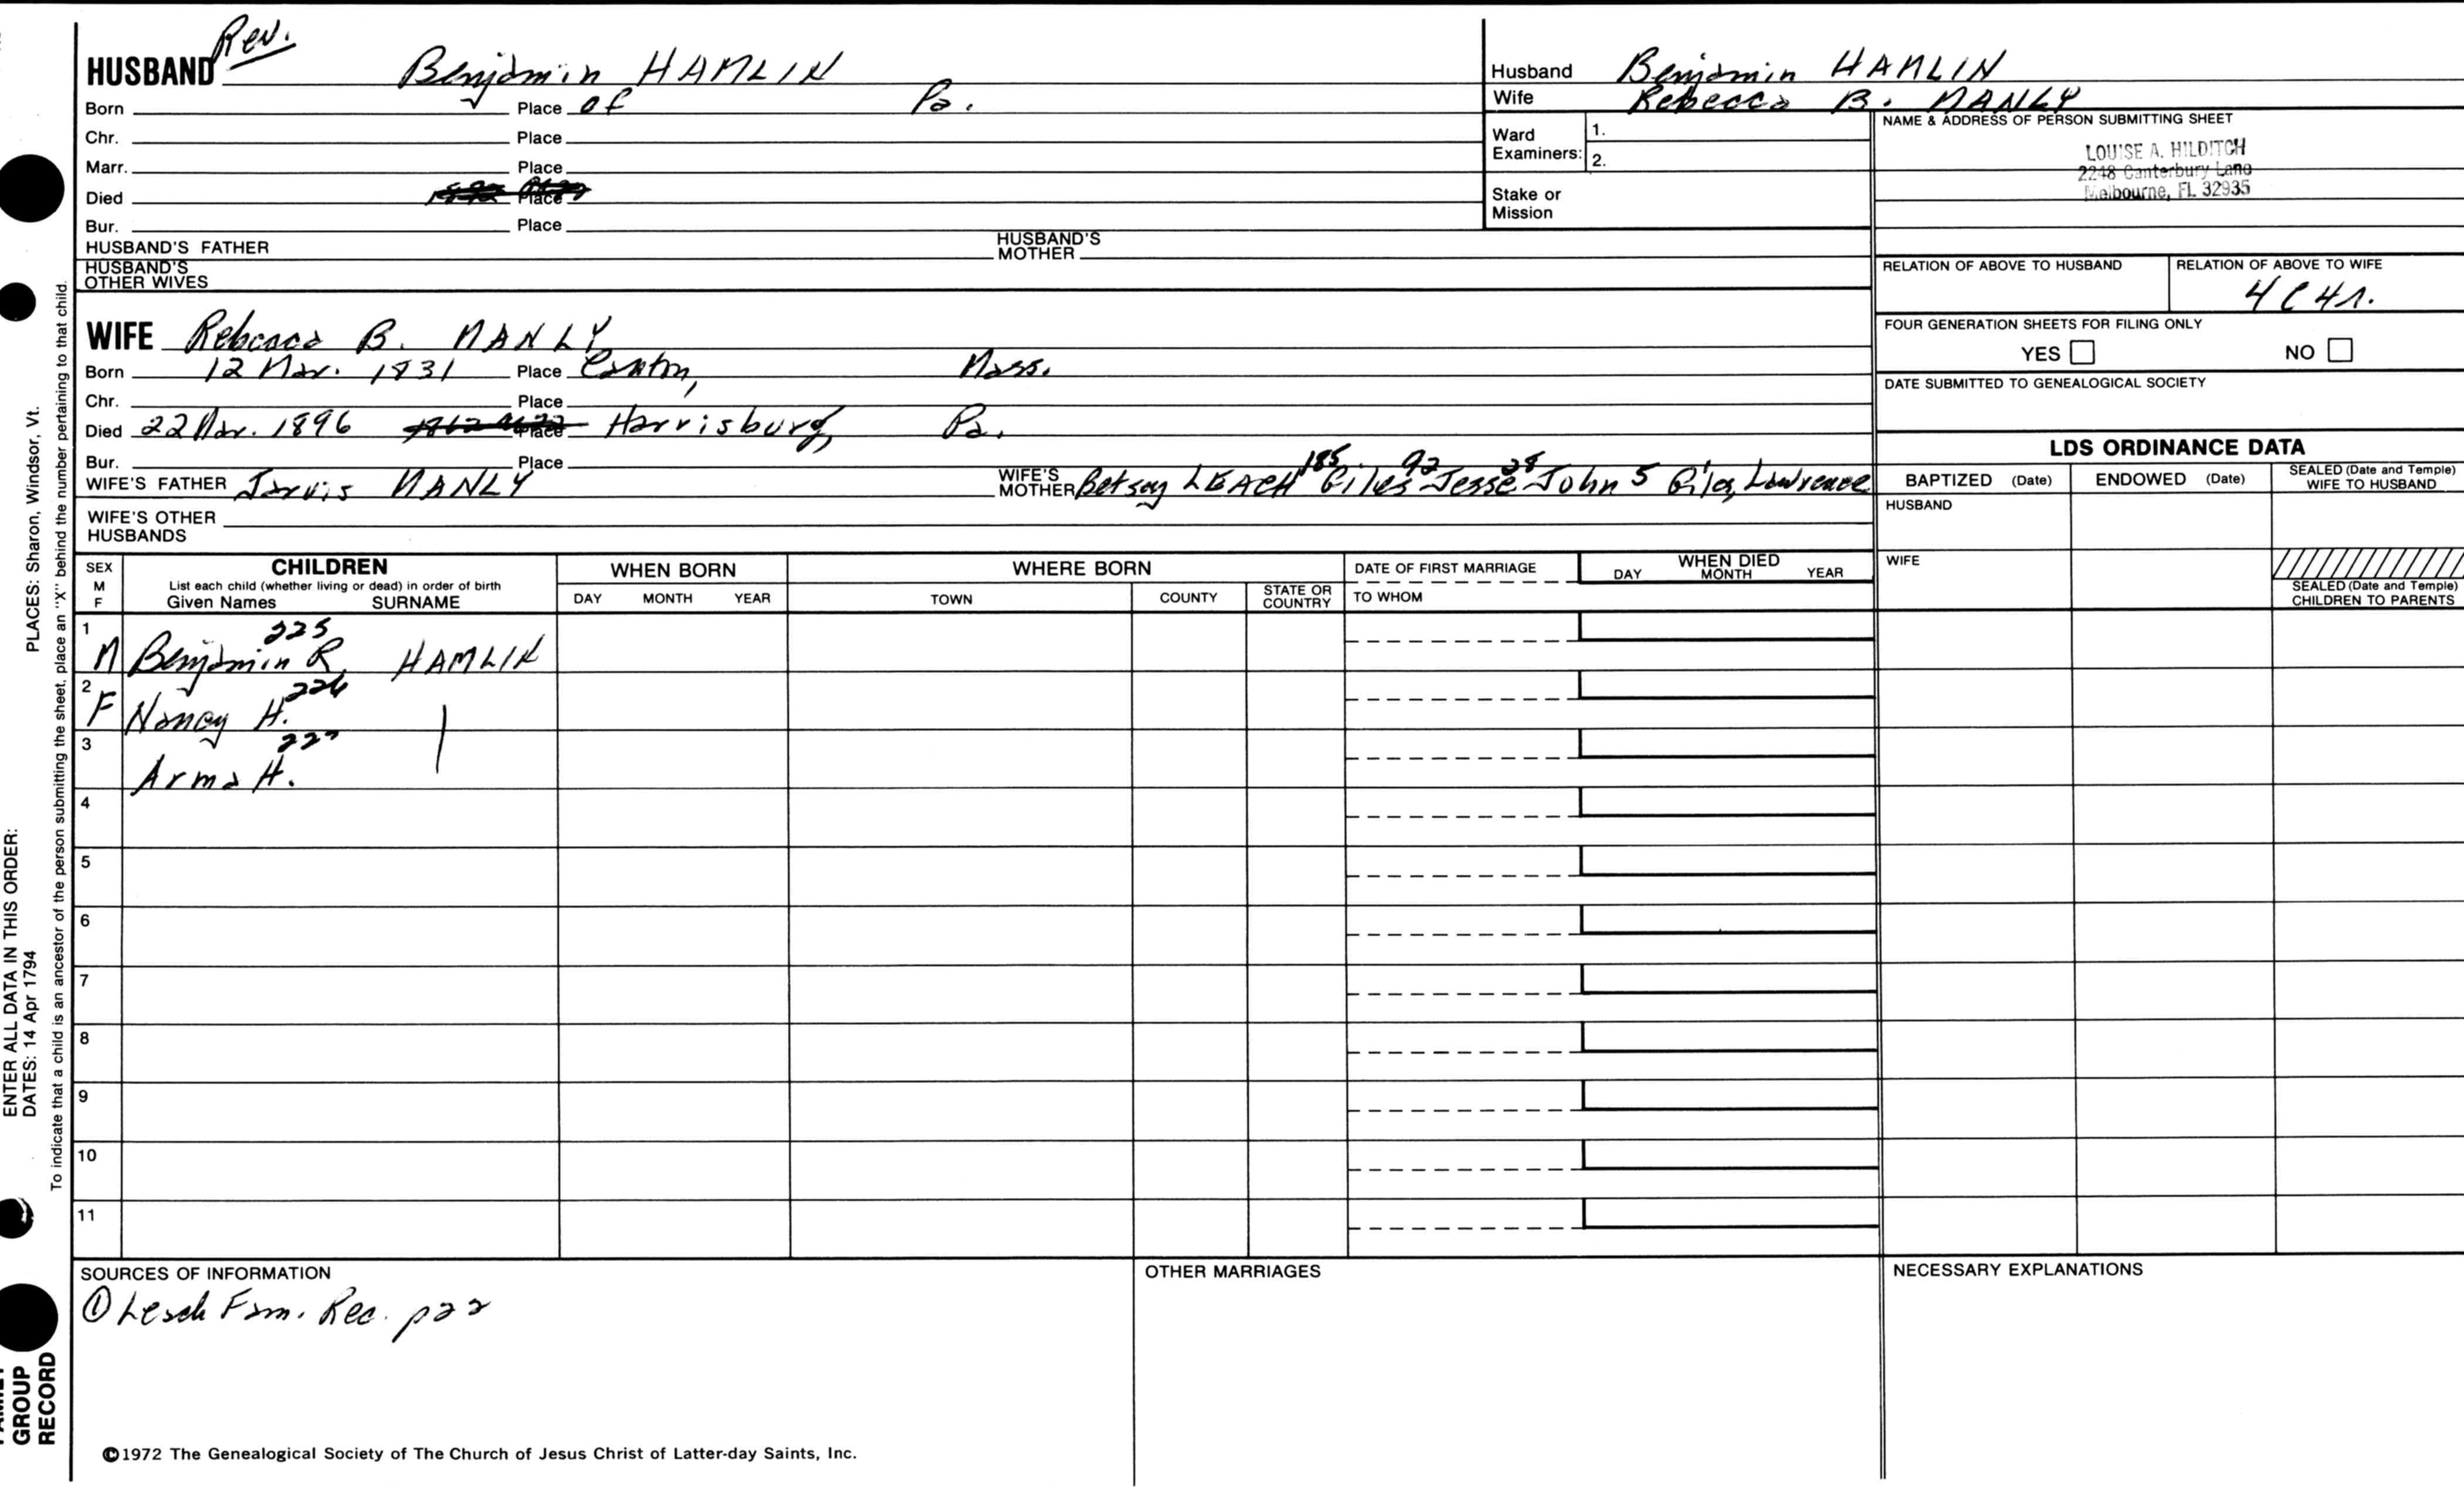 Rev.
HUSBAND Benjamin HAMLIN
Born Place of Pa.
Chr. Place
Marr. Place
Died Place
Bur. Place
HUSBAND'S FATHER HUSBAND'S MOTHER
HUSBAND'S OTHER WIVES
WIFE Rebecca B. MANLY
Born 12 Mar. 1831 Place Canton, Mass.
Chr. Place
Died 22 Mar. 1896 Place Harrisburg, Pa.
Bur. Place
WIFE'S FATHER Jarvis MANLY WIFE'S MOTHER Betsy LEACH 185 Giles 92 Jesse 28 John 5 Giles, Lawrence
WIFE'S OTHER HUSBANDS
Husband Benjamin HAMLIN
Wife Rebecca B. MANLY
Ward Examiners: 1.
2.
Stake or Mission
NAME & ADDRESS OF PERSON SUBMITTING SHEET
LOUISE A. HILDITCH
2248 Canterbury Lane
Melbourne, FL 32935
RELATION OF ABOVE TO HUSBAND RELATION OF ABOVE TO WIFE
4C4r.
FOUR GENERATION SHEETS FOR FILING ONLY
YES NO
DATE SUBMITTED TO GENEALOGICAL SOCIETY
LDS ORDINANCE DATA
BAPTIZED (Date) ENDOWED (Date) SEALED (Date and Temple) WIFE TO HUSBAND
HUSBAND
WIFE
SEALED (Date and Temple) CHILDREN TO PARENTS
SEX M F
CHILDREN
List each child (whether living or dead) in order of birth
Given Names SURNAME
WHEN BORN
DAY MONTH YEAR
WHERE BORN
TOWN COUNTY STATE OR COUNTRY
DATE OF FIRST MARRIAGE
TO WHOM
WHEN DIED
DAY MONTH YEAR
1 M Benjamin R. 225 HAMLIN
2 F Nancy H. 226
3 Arma H. 227
4
5
6
7
8
9
10
11
SOURCES OF INFORMATION
① Leach Fam. Rec. p22
OTHER MARRIAGES
NECESSARY EXPLANATIONS
©1972 The Genealogical Society of The Church of Jesus Christ of Latter-day Saints, Inc.
ENTER ALL DATA IN THIS ORDER:
DATES: 14 Apr 1794 PLACES: Sharon, Windsor, Vt.
To indicate that a child is an ancestor of the person submitting the sheet, place an "X" behind the number pertaining to that child.
GROUP
RECORD